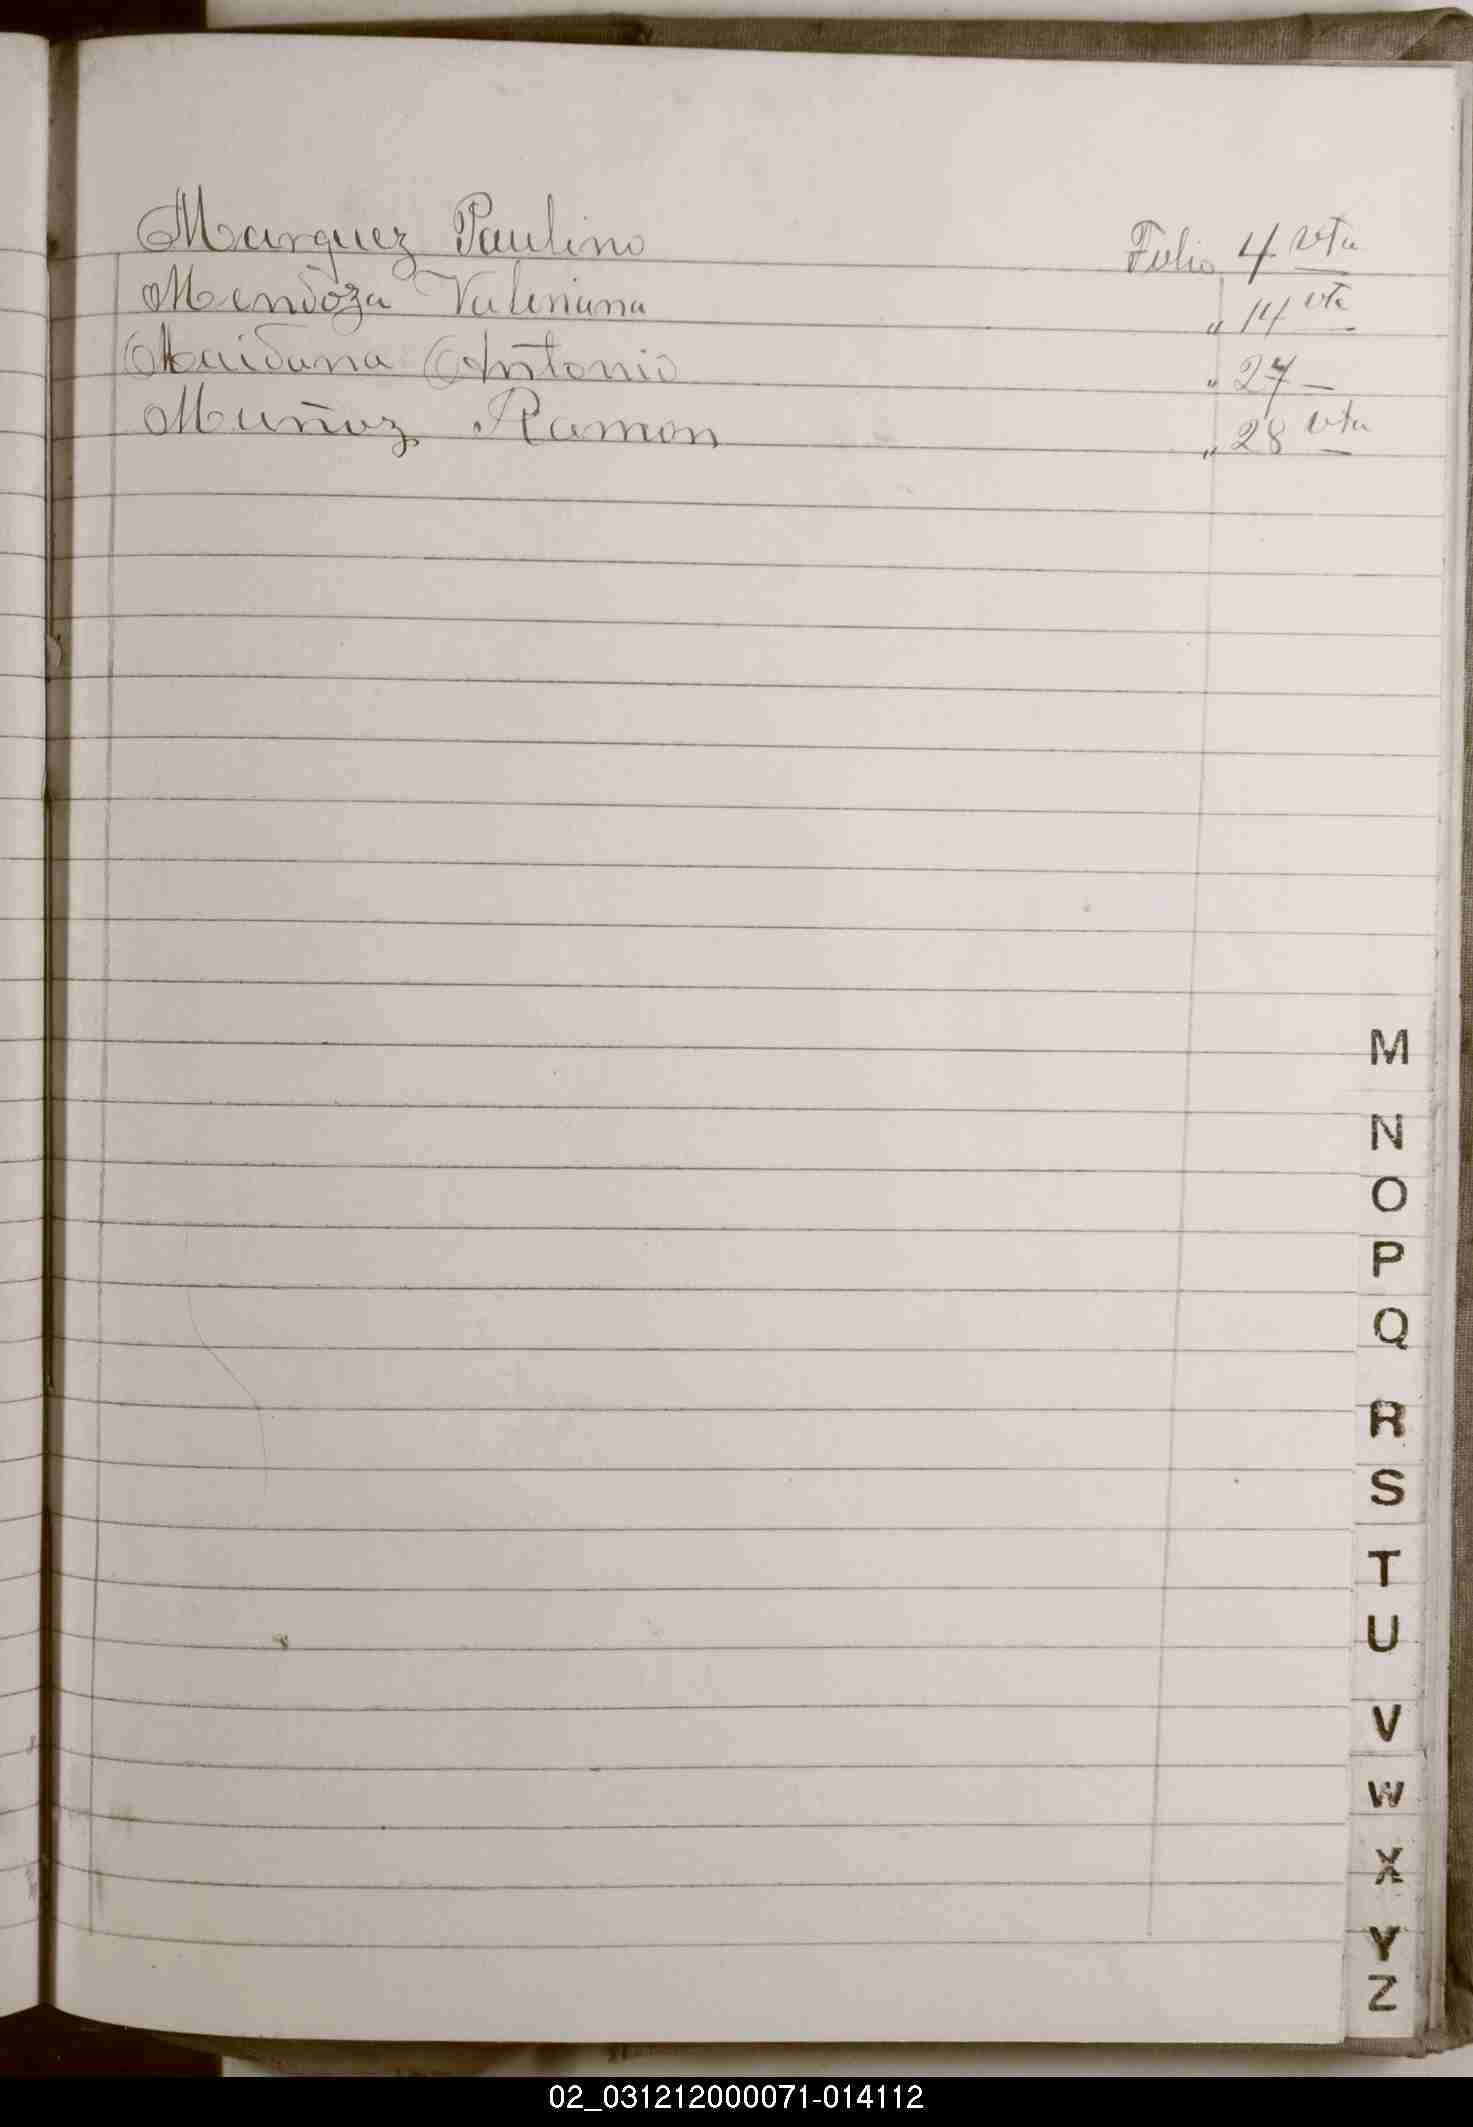 Marquez Paulino Folio 4 vta
Mendoza Valeriana " 14 vta
Maidana Antonio " 27 —
Muñoz Ramon " 28 vta
M
N
O
P
Q
R
S
T
U
V
W
X
Y
Z
02_031212000071-014112